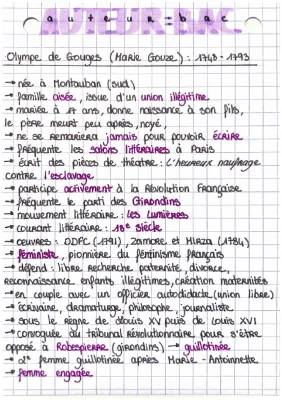 auteur - bac
AUTEUR-BAC
Olympe de Gouges (Marie Gouze) : 1748 - 1793
→ née à Montauban (sud)
→ famille aisée, issue d'un union illégitime
→ mariée à 17 ans, donne naissance à son fils,
le père meurt peu après, noyé.
→ ne se remariera jamais pour pouvoir écrire
→ fréquente les salons littéraires à Paris
→ écrit des pièces de théatre : L'heureux naufrage
contre l'esclavage
→ participe activement à la Révolution Française
→ fréquente le parti des Girondins
→ mouvement littéraire : les Lumières
→ courant littéraire : 18e siècle
→ oeuvres : DDFC (1791), Zamore et Mirza (1784)
→ féministe, pionnière du féminisme français
→ défend : libre recherche paternité, divorce,
reconnaissance enfants illégitimes, création maternités
→ en couple avec un officier autodidacte (union libre)
→ écrivaine, dramaturge, philosophe, journaliste
→ sous le règne de Louis XV puis de Louis XVI
→ convoquée au tribunal révolutionnaire pour s'être
opposé à Robespierre (girondins) → guillotinée
→ 2e femme guillotinée après Marie - Antoinnette
→ femme engagée